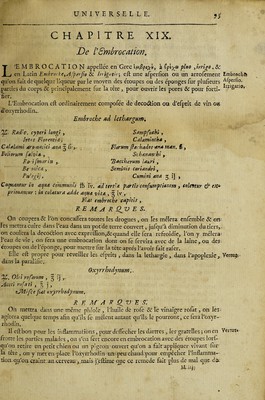 UNIVERSELLE. 95
CHAPITRE XIX.
De l'Embrocation.
L'EMBROCATION appellée en Grec à
en Latin Embroche, Aspersio & Irrigatio, est une aspersion ou un arrosement
qu'on fait de quelque liqueur par le moyen des étoupes ou des éponges sur plusieurs
parties du corps & principalement sur la tête, pour ouvrir les pores & pour fortifier.
Embroche.
Aspersio.
Irrigatio.
L'Embrocation est ordinairement composée de decoction ou d'esprit de vin ou
d'oxyrrhodin.
Embroche ad lethargum.
♃. Radic. cyperi longi,
Ireos Florentiæ,
Calami aromatici ana ℥ ß.
Foliorum salviæ,
Rorismarin.,
Betonicæ,
Pulegii,
Serpilli,
Calaminthæ,
Florum stœchados ana man. ß,
Schœnanthi,
Baccharum lauri,
Seminis coriandri,
Cumini ana ʒ ij,
Coquantur in aquæ communis ℔ iv. ad tertiæ partis consumptionem, colentur & exprimantur: in colatura adde aquæ vitæ, ℥ iv.
Fiat embroche capitis,
REMARQUES.
On coupera & l'on concassera toutes les drogues, on les mêlera ensemble & on les
mettra cuire dans l'eau dans un pot de terre couvert, jusqu'à diminution du tiers,
on coulera la decoction avec expression, & quand elle sera refroidie, l'on y mêlera
l'eau de vie, on fera une embrocation dont on se servira avec de la laine, ou des
étoupes ou de l'éponge, pour mettre sur la tête après l'avoir fait raser.
Elle est propre pour réveiller les esprits, dans la lethargie, dans l'apoplexie,
dans la paralisie.
Vertus.
Oxyrrhodynum.
♃. Olei rosarum, ℥ ij,
Aceti rosati, ℥ j,
Misce fiat oxyrrhodynum.
REMARQUES.
On mettra dans une même phiole, l'huile de rose & le vinaigre rosat, on les
agitera quelque temps afin qu'ils se mêlent autant qu'ils le pourront, ce sera l'oxyrrhodin.
Il est bon pour les inflammations, pour dessécher les dartres, les gratelles; on en
frotte les parties malades, on s'en sert encore en embrocation avec des étoupes lorsqu'on
retire un petit chien ou un pigeon ouvert qu'on a fait appliquer vivant sur
la tête, on y met en place l'oxyrrhodin un peu chaud pour empêcher l'inflammation
qu'on craint au cerveau, mais j'estime que ce remede fait plus de mal que de
Vertus.
M iij